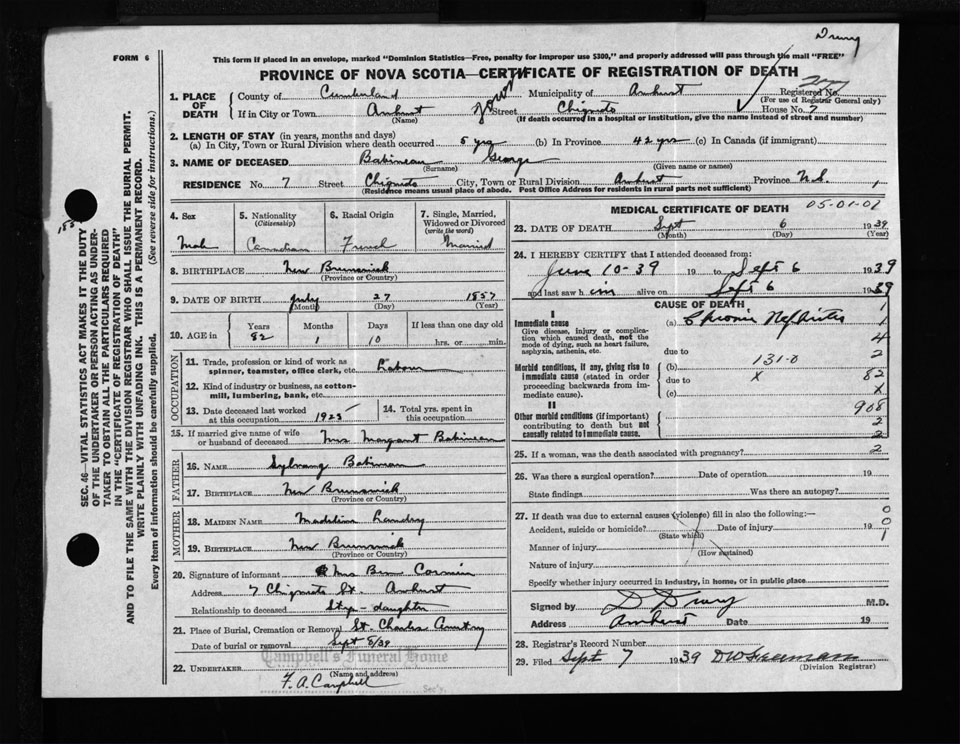 Drury
FORM 6
This form if placed in an envelope, marked "Dominion Statistics—Free, penalty for improper use $300," and properly addressed will pass through the mail "FREE"
PROVINCE OF NOVA SCOTIA—CERTIFICATE OF REGISTRATION OF DEATH
1. PLACE OF DEATH County of Cumberland Municipality of Amherst Registered No.
(For use of Registrar General only)
If in City or Town Amherst Street Chignecto House No. 7
(Name) (If death occurred in a hospital or institution, give the name instead of street and number)
2. LENGTH OF STAY (in years, months and days)
(a) In City, Town or Rural Division where death occurred 5 yrs (b) In Province 42 yrs (c) In Canada (if immigrant)
3. NAME OF DECEASED Babineau George
(Surname) (Given name or names)
RESIDENCE No. 7 Street Chignecto City, Town or Rural Division Amherst Province N.S. 1
(Residence means usual place of abode. Post Office Address for residents in rural parts not sufficient)
4. Sex
Male
5. Nationality (Citizenship)
Canadian
6. Racial Origin
French
7. Single, Married, Widowed or Divorced (write the word)
Married
8. BIRTHPLACE New Brunswick
(Province or Country)
9. DATE OF BIRTH July 27 1857
(Month) (Day) (Year)
10. AGE in Years Months Days If less than one day old
82 1 10 hrs. or min.
OCCUPATION
11. Trade, profession or kind of work as spinner, teamster, office clerk, etc. Labour
12. Kind of industry or business, as cotton-mill, lumbering, bank, etc.
13. Date deceased last worked at this occupation 1925
14. Total yrs. spent in this occupation
15. If married give name of wife or husband of deceased Mrs Margaret Babineau
FATHER
16. NAME Babineau
17. BIRTHPLACE New Brunswick
(Province or Country)
MOTHER
18. MAIDEN NAME Landry
19. BIRTHPLACE New Brunswick
(Province or Country)
20. Signature of informant Mrs Ben Cormier
Address 7 Chignecto St. Amherst
Relationship to deceased Step-daughter
21. Place of Burial, Cremation or Removal St. Charles Cemetry
Date of burial or removal Sept 8/39
Campbell's Funeral Home
22. UNDERTAKER
(Name and address)
F. A. Campbell
Sec'y.
MEDICAL CERTIFICATE OF DEATH 05-01-02
23. DATE OF DEATH Sept 6 1939
(Month) (Day) (Year)
24. I HEREBY CERTIFY that I attended deceased from:
June 10-39 19 to Sept 6 1939
and last saw him alive on Sept 6 1939
CAUSE OF DEATH
I
Immediate cause (a) Chronic Nephritis 1
Give disease, injury or complication which caused death, not the mode of dying, such as heart failure, asphyxia, asthenia, etc. 4
due to 2
Morbid conditions, if any, giving rise to immediate cause (stated in order proceeding backwards from immediate cause). (b) 131-0
due to X 82
(c) X
II 908
Other morbid conditions (if important) contributing to death but not causally related to immediate cause. 2
2
25. If a woman, was the death associated with pregnancy? 2
26. Was there a surgical operation? Date of operation 19
State findings Was there an autopsy?
27. If death was due to external causes (violence) fill in also the following:— 0
Accident, suicide or homicide? Date of injury 19 0
(State which) 1
Manner of injury
(How sustained)
Nature of injury
Specify whether injury occurred in industry, in home, or in public place
Signed by D Drury M.D.
Address Amherst Date 19
28. Registrar's Record Number
29. Filed Sept 7 1939
(Division Registrar)
SEC. 46—VITAL STATISTICS ACT MAKES IT THE DUTY
OF THE UNDERTAKER OR PERSON ACTING AS UNDER-
TAKER TO OBTAIN ALL THE PARTICULARS REQUIRED
IN THE "CERTIFICATE OF REGISTRATION OF DEATH"
AND TO FILE THE SAME WITH THE DIVISION REGISTRAR WHO SHALL ISSUE THE BURIAL PERMIT.
WRITE PLAINLY WITH UNFADING INK. THIS IS A PERMANENT RECORD.
Every item of information should be carefully supplied. (See reverse side for instructions.)